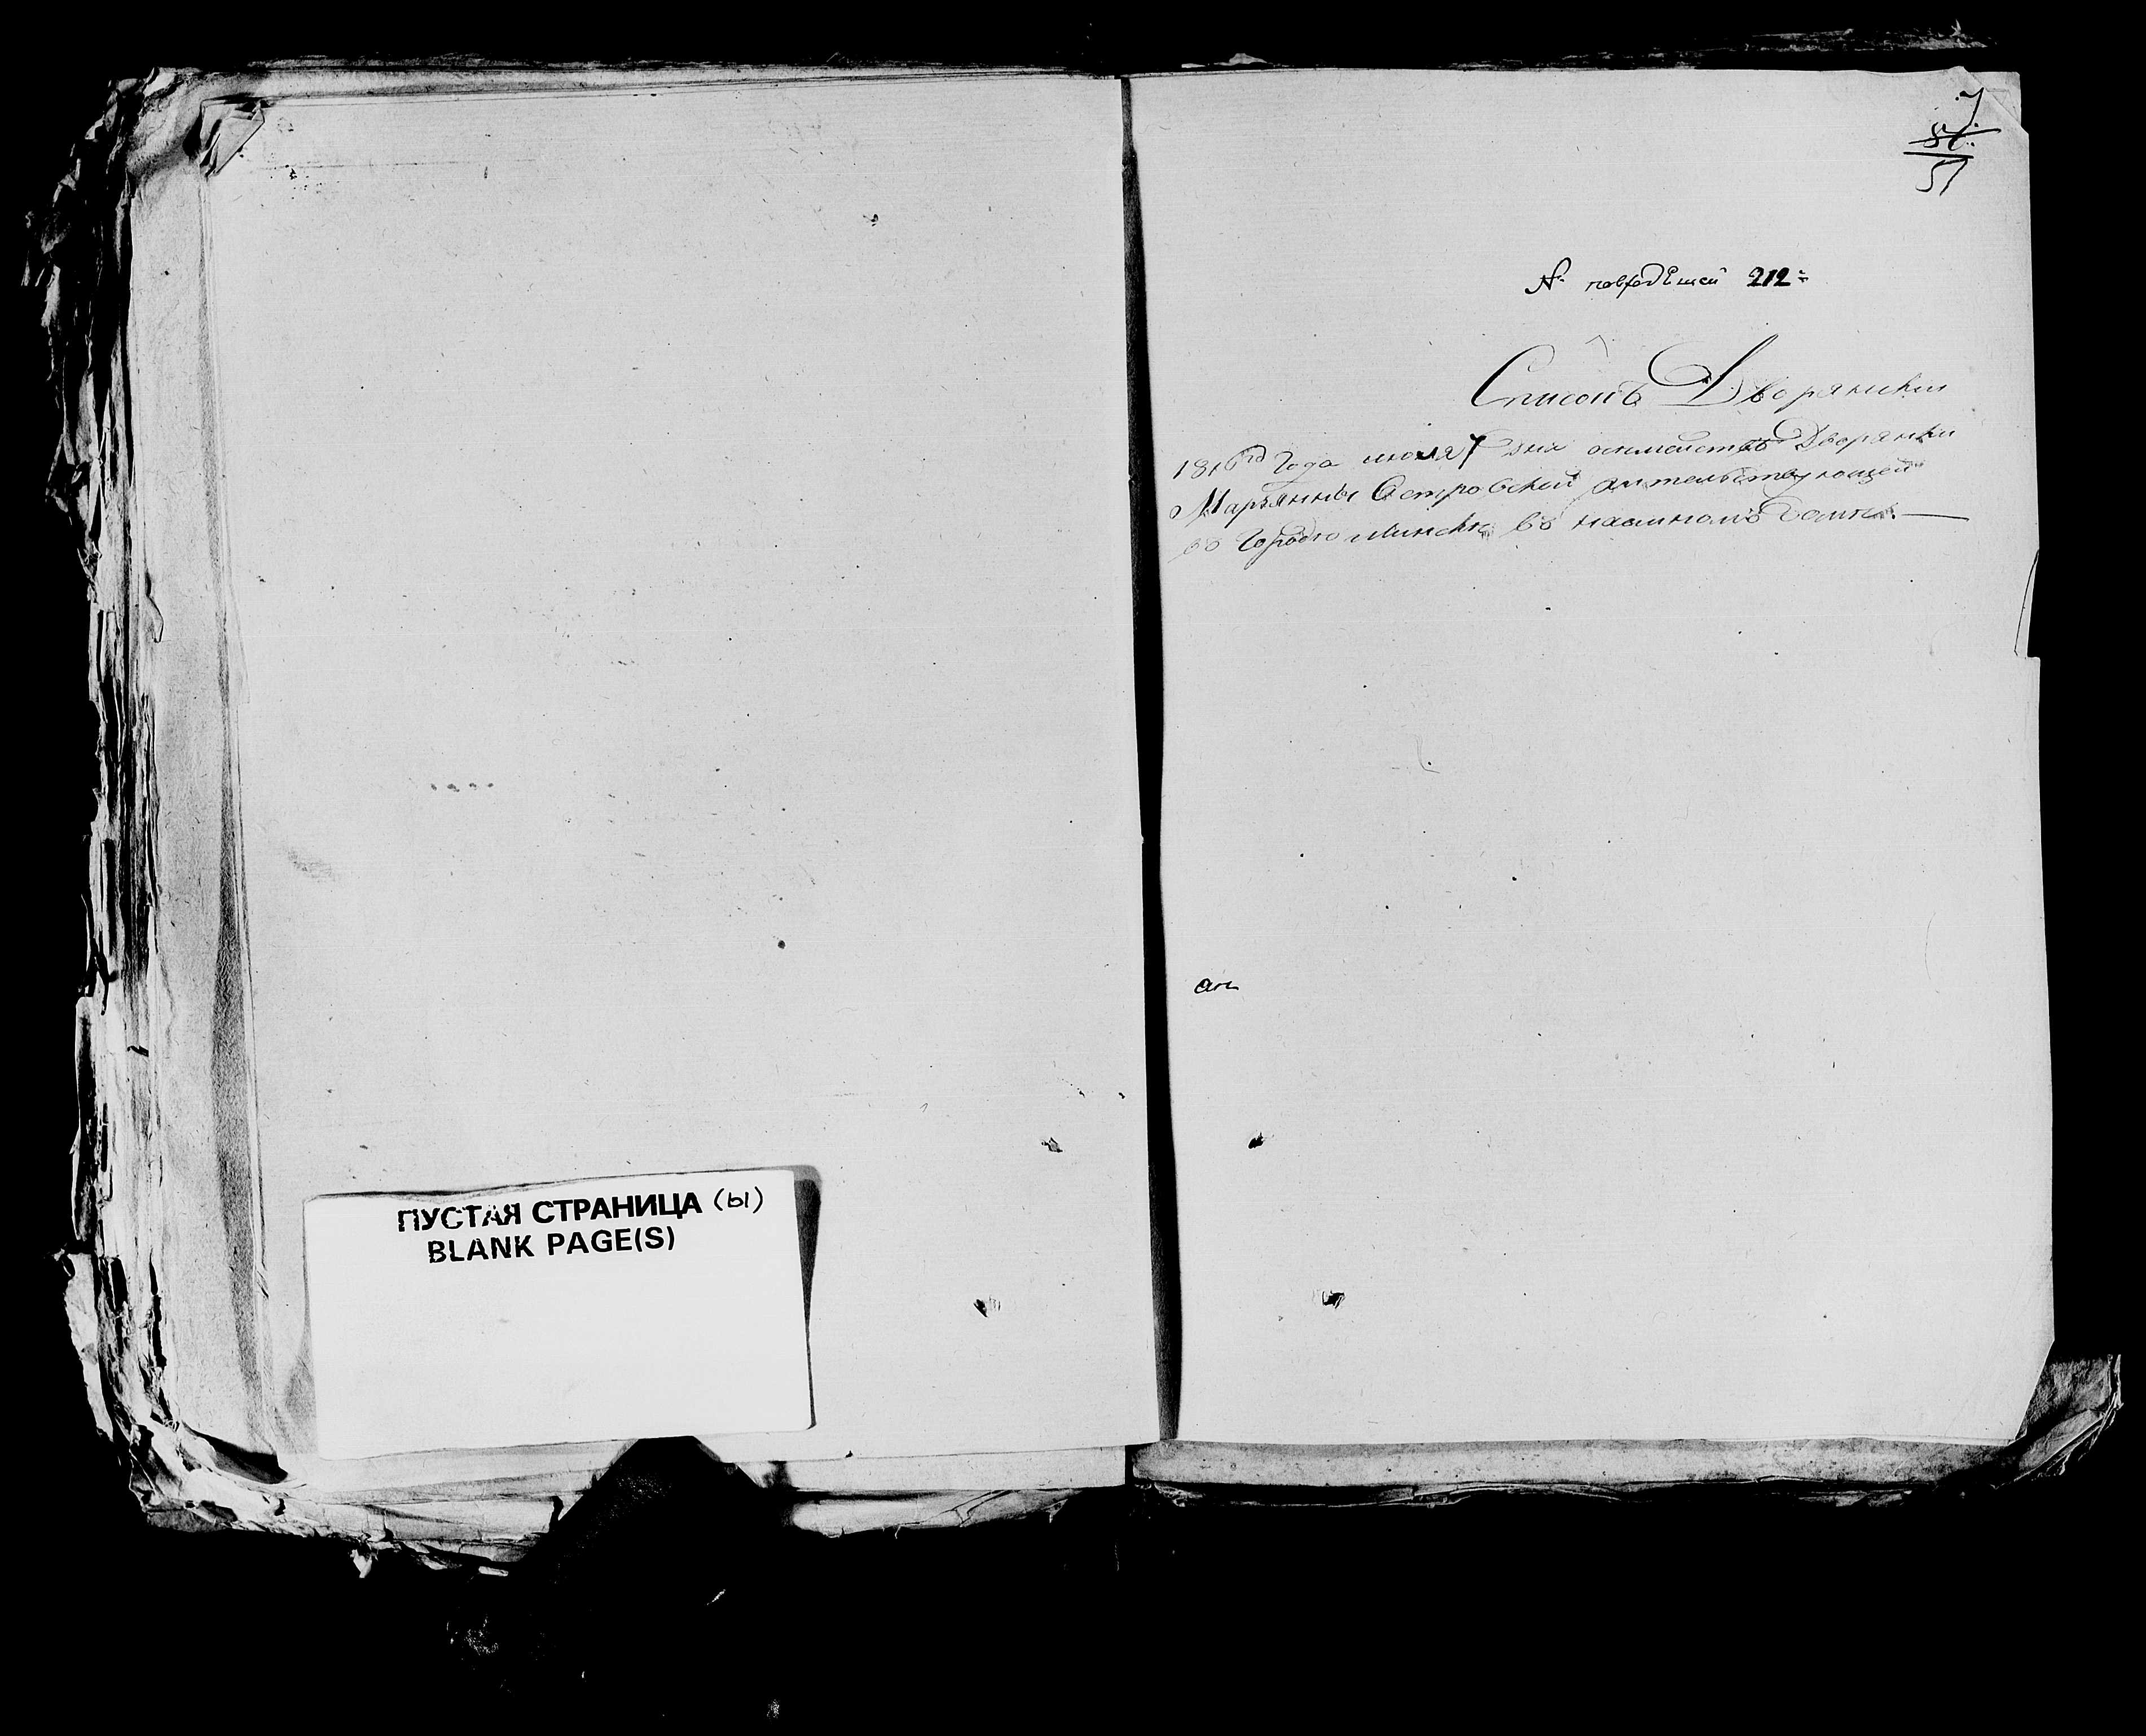 ПУСТАЯ СТРАНИЦА (ы)
BLANK PAGE(S)
7
51
№ 212
Списокъ Дворянскій
1816го Года июля 7 дня осемействѣ Дворянки
Марьянны Островской жительствующей
въ Городѣ Минскѣ въ наемномъ Домѣ